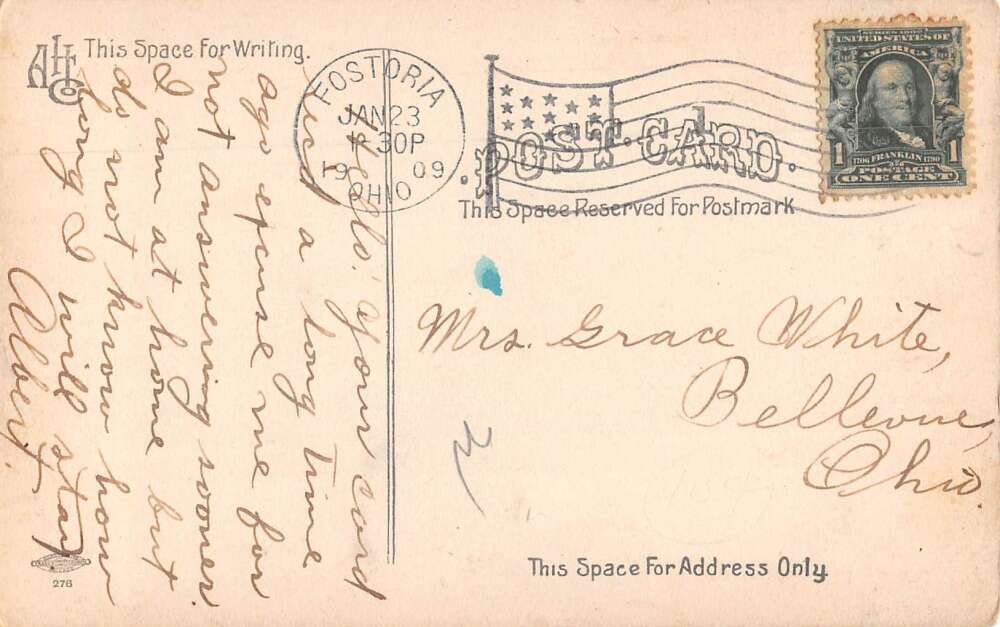 AHCo
This Space For Writing.
Hello! Your card
recd a long time
ago excuse me for
not answering sooner.
I am at home but
do not know how
long I will stay
Albert
FOSTORIA
JAN 23
30P
1909
OHIO
POST CARD.
This Space Reserved For Postmark
SERIES 1902
UNITED STATES OF
AMERICA
1 1706 FRANKLIN 1790 1
POSTAGE
ONE CENT
Mrs. Grace White,
Bellevue,
Ohio
This Space For Address Only.
276